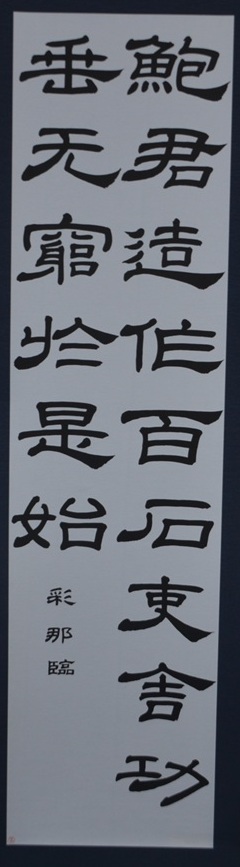 鮑君造作百石吏舎功
垂无窮於是始
彩那臨